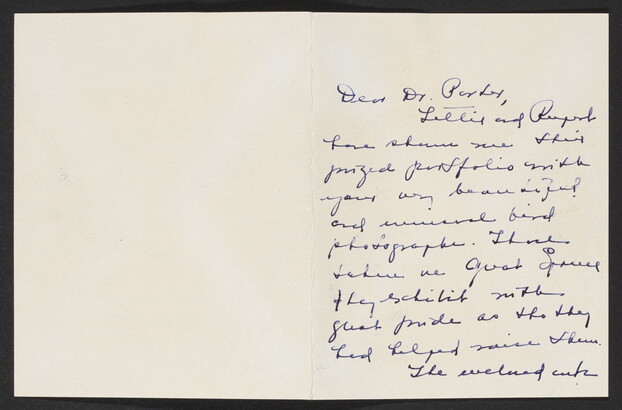 Dear Dr. Porter,
Lettie and Rupert
have shown me their
prized portfolio with
your very beautiful
and unusual bird
photographs. Those
taken on Great Spruce
they exhibit with
great pride as tho they
had helped raise them.
The enclosed